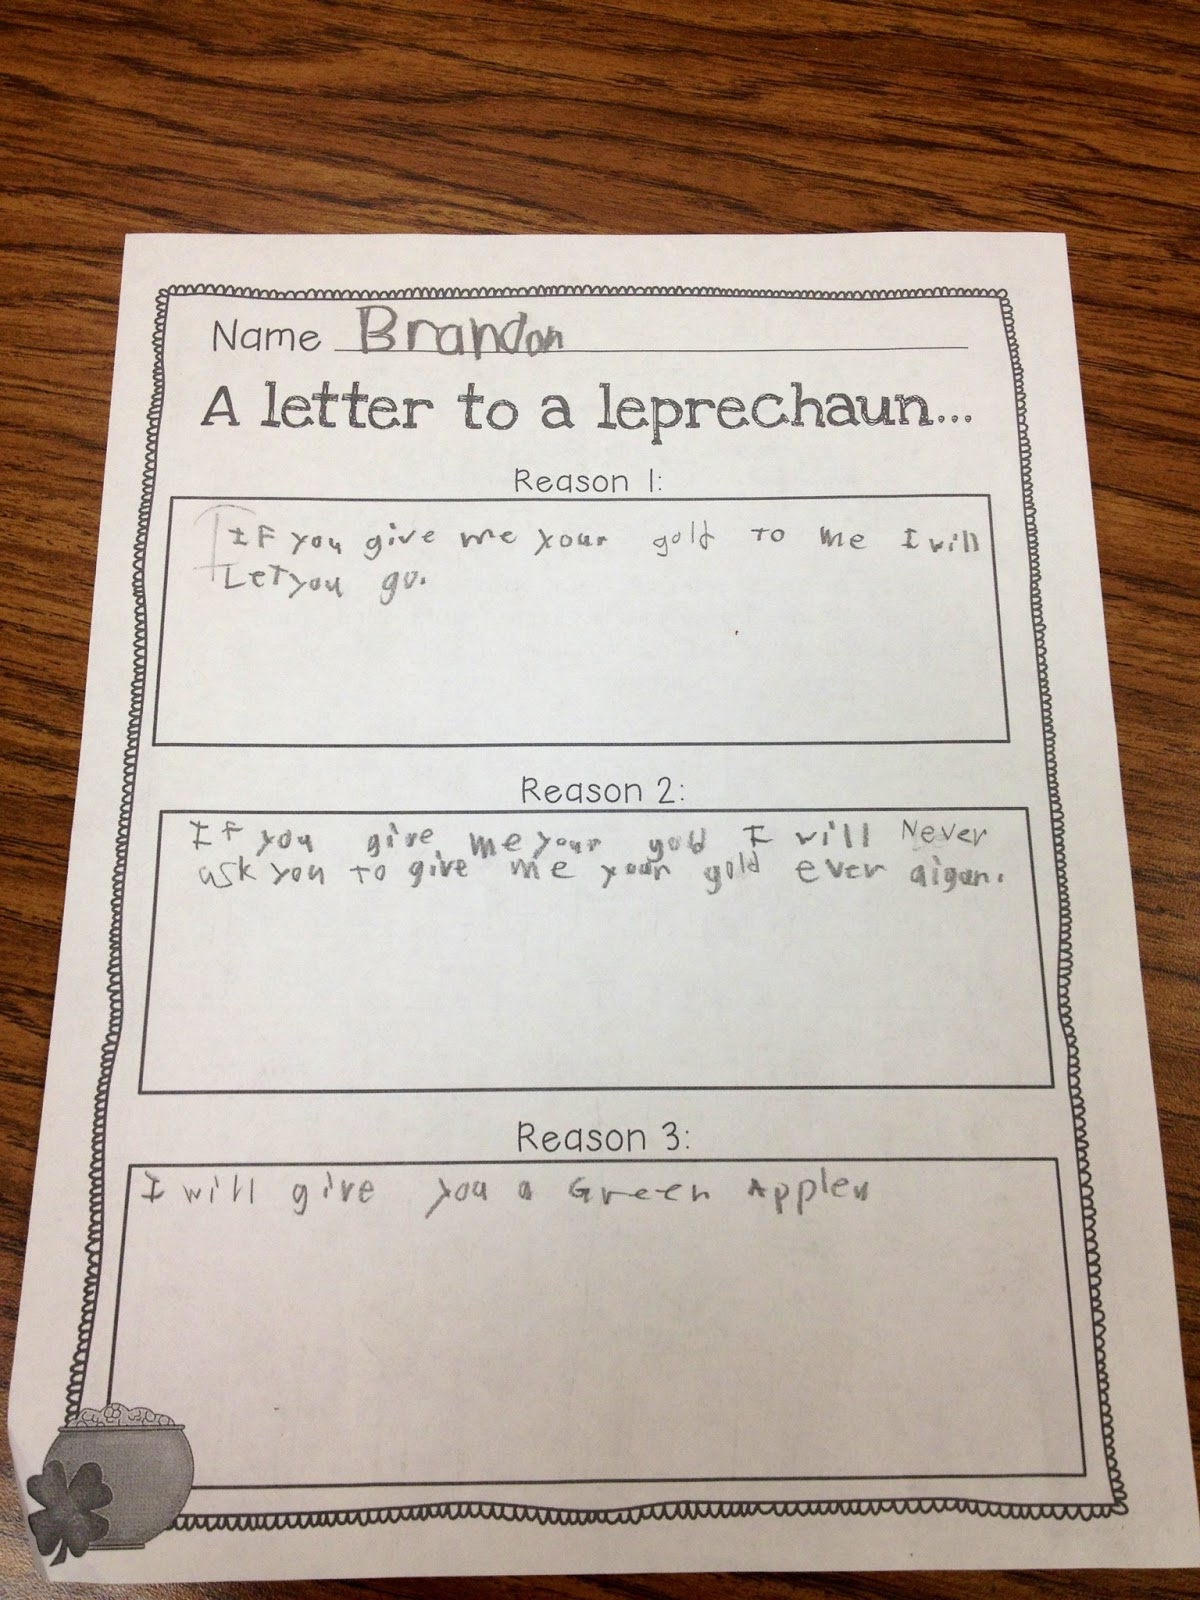 Name Brandon
A letter to a leprechaun...
Reason 1:
If you give me your gold to me I will
Let you go.
Reason 2:
If you give me your gold I will Never
ask you to give me your gold ever aigan.
Reason 3:
I will give you a Green